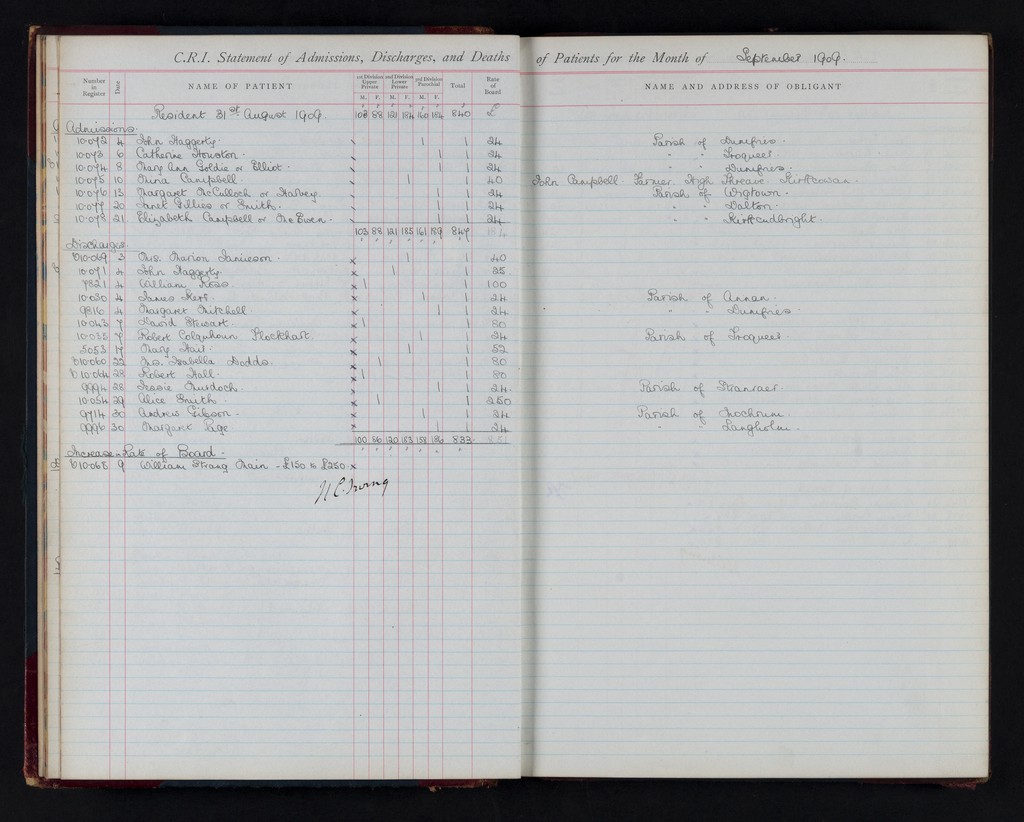 C.R.I. Statement of Admissions, Discharges, and Deaths of Patients for the Month of September 1909.
Number in Register Date NAME OF PATIENT 1st Division Upper Private 2nd Division Lower Private 3rd Division Parochial Total Rate of Board NAME AND ADDRESS OF OBLIGANT
M. F. M. F. M. F.
Resident 31st August 1909. 103 88 121 184 160 184 840 £
Admissions.
10.072 4 John Haggerty. 1 1 24 Parish of Dumfries.
10.073 6 Catherine Houston. 1 1 24 " " Troqueer.
10.074 8 Mary Ann Goldie or Elliot. 1 1 24 " " Dumfries.
10.075 10 Mina Campbell. 1 1 40 John Campbell. Farmer. High Threave. Kirkcowan.
10.076 13 Margaret McCulloch or Harvey. 1 1 24 Parish of Wigtown.
10.077 20 Janet Gillies or Smith. 1 1 24 " " Dalton.
10.078 21 Elizabeth Campbell or McEwen. 1 1 24 " " Kirkcudbright.
103 88 121 185 161 189 847
Discharges.
10.069 3 Mrs. Marion Jamieson. x 1 1 40
10.071 4 John Haggerty. x 1 1 35
7821 4 William Ross. x 1 1 100
10.030 4 James Kerr. x 1 1 24 Parish of Annan.
9816 4 Margaret Mitchell. x 1 1 24 " " Dumfries.
10.043 7 David Stewart. x 1 1 80
10.035 7 Robert Colquhoun Flockhart. x 1 1 24 Parish of Troqueer.
5053 17 Mary Hail. x 1 1 52
10.060 22 Mrs. Isabella Dodds. x 1 1 80
10.064 28 Robert Hall. x 1 1 80
9994 28 Jessie Murdoch. x 1 1 24 Parish of Stranraer.
10.054 29 Alice Smith. x 1 1 250
9714 30 Andrew Gibson. x 1 1 24 Parish of Mochrum.
9996 30 Margaret Page. x 1 1 24 " " Langholm.
100 86 120 183 158 186 833
Increase - Rate of Board.
10.065 9 William Strang Main - £150 to £250. x